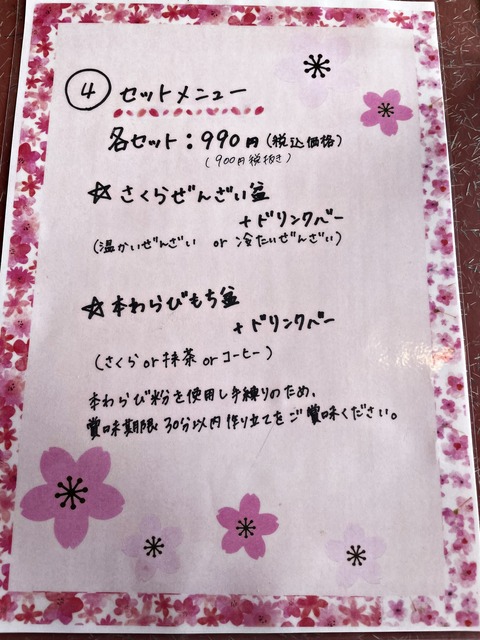 ④ セットメニュー
各セット：990円(税込価格)
(900円税抜き)
☆さくらぜんざい盆
+ドリンクバー
(温かいぜんざい or 冷たいぜんざい)
☆本わらびもち盆
+ドリンクバー
(さくら or 抹茶 or コーヒー)
本わらび粉を使用し手練りのため、
賞味期限30分以内 作り立てをご賞味ください。